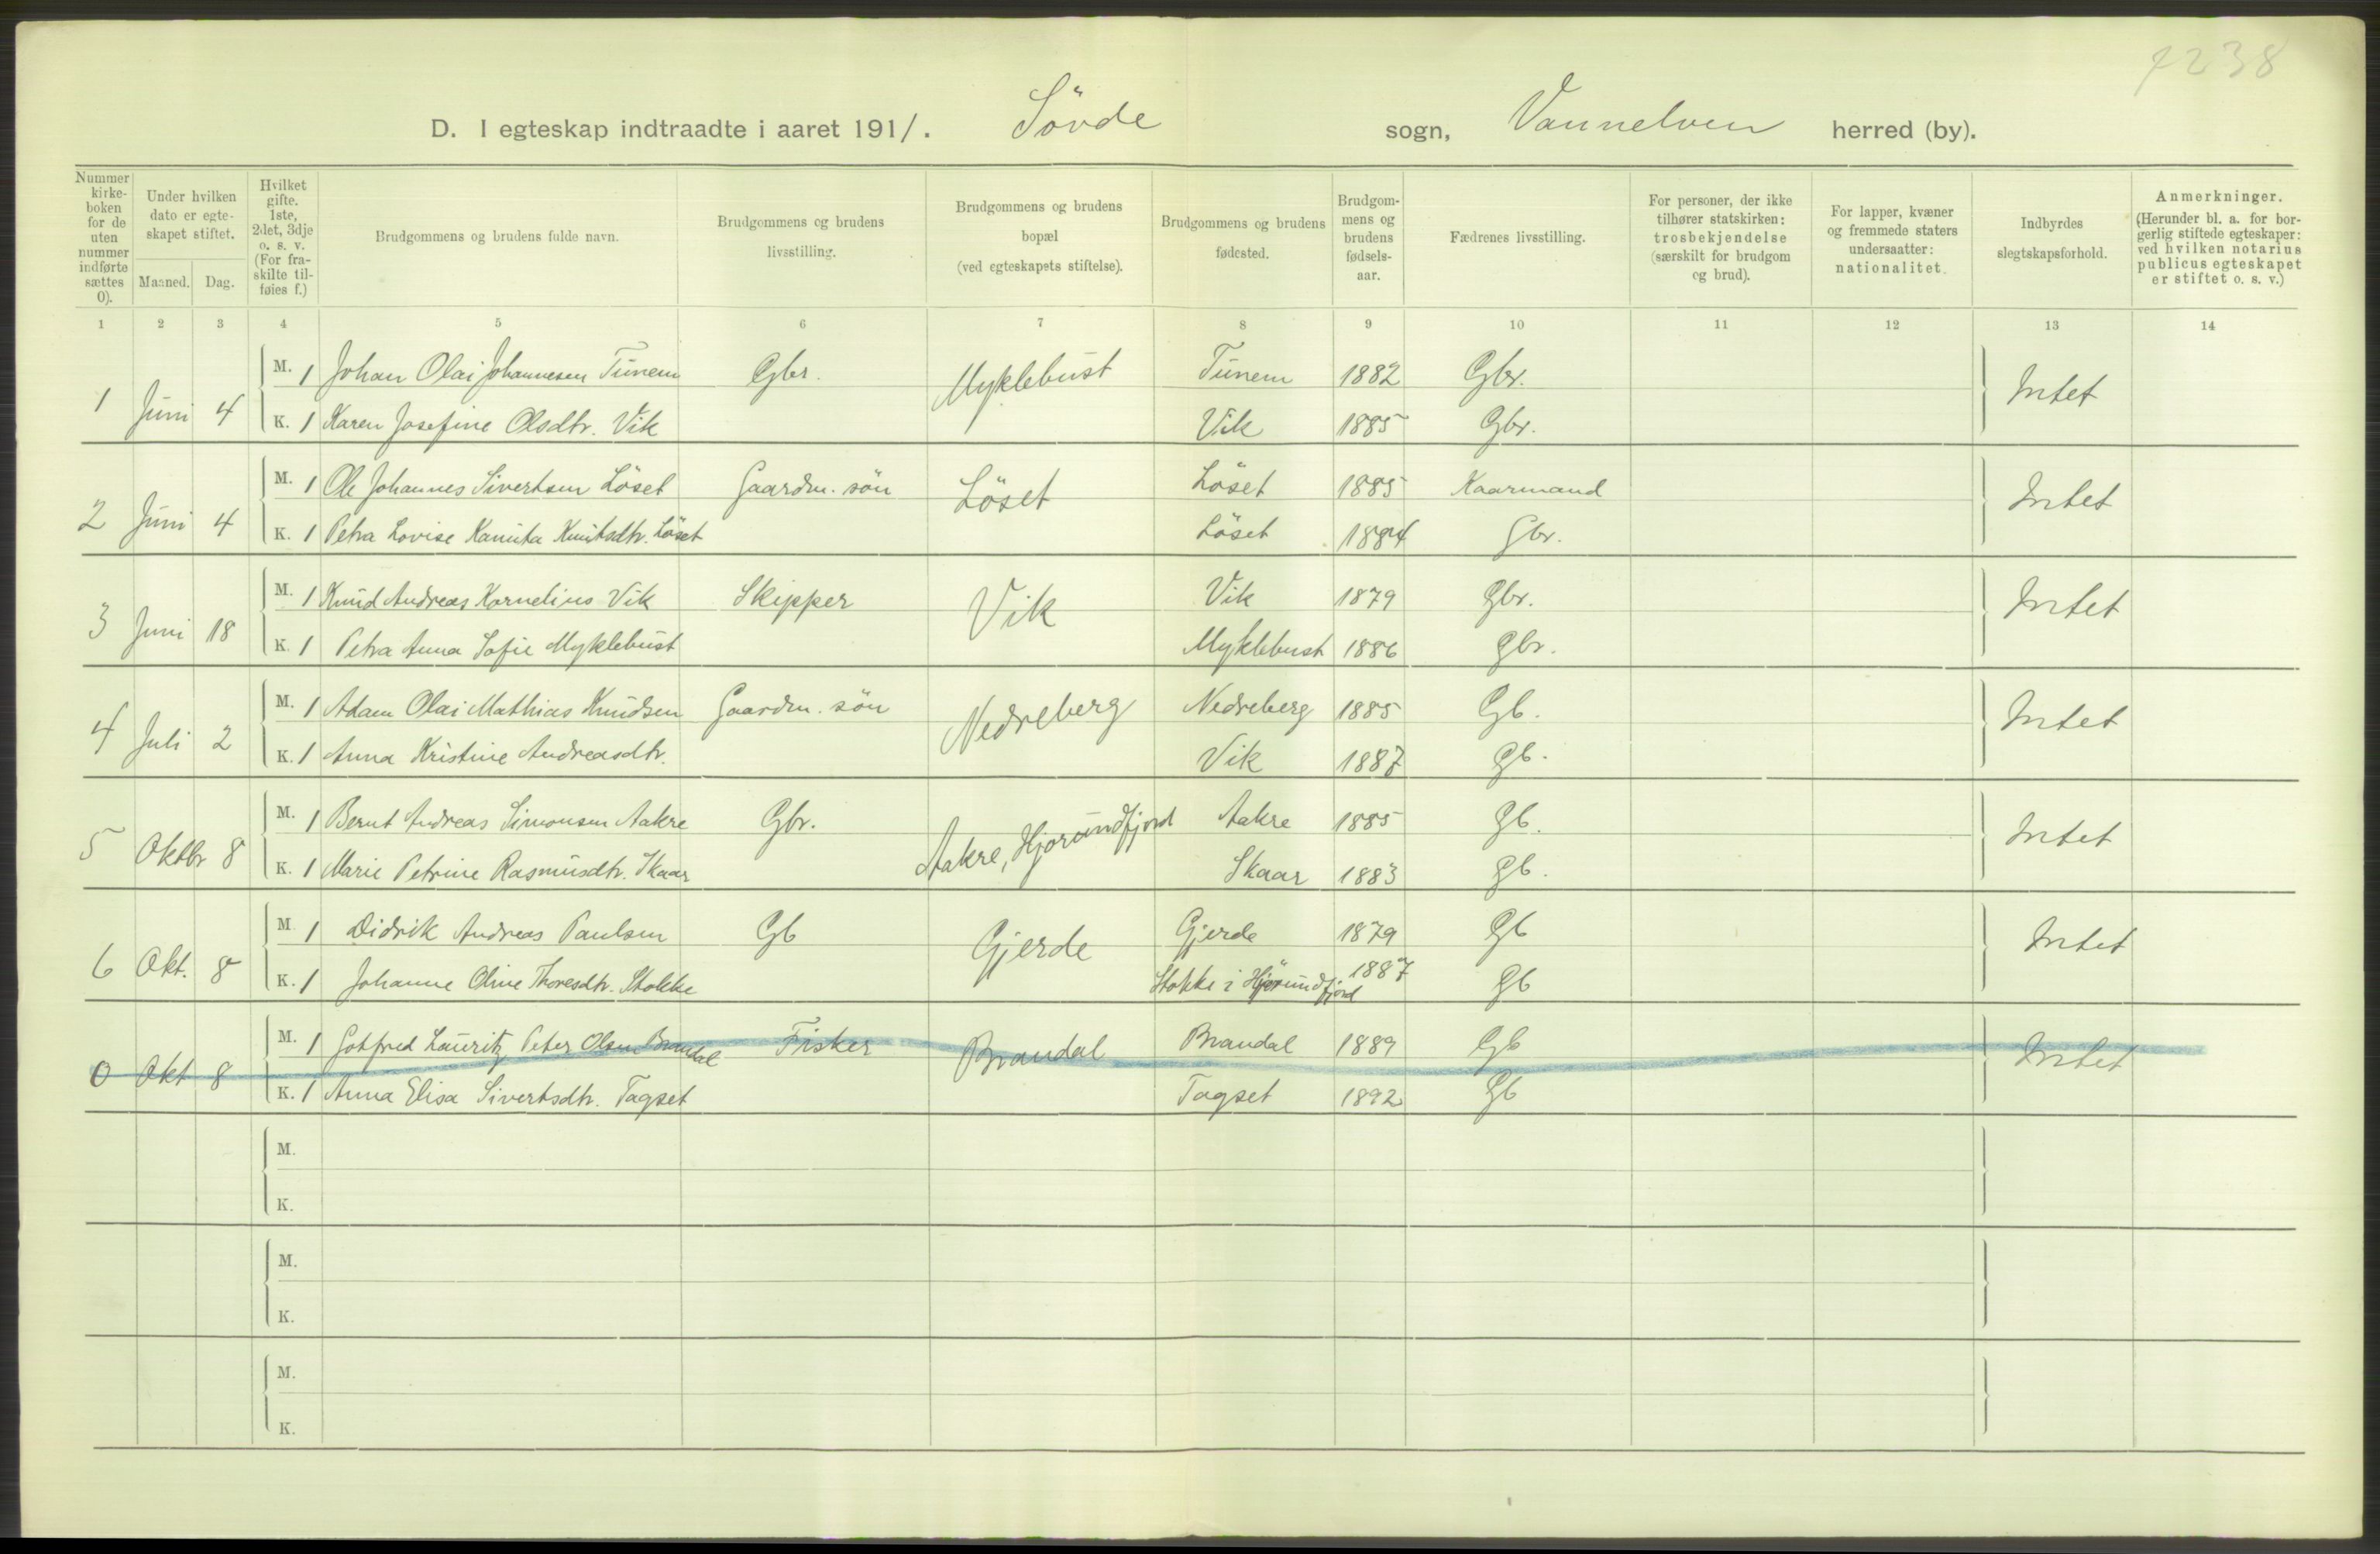 7238
D. I egteskap indtraadte i aaret 1911. Sövde sogn, Vannelven herred (by).
Nummer kirke-boken for de uten nummer indførte sættes 0).
Under hvilken dato er egte-skapet stiftet.
Maaned. Dag.
Hvilket gifte. 1ste, 2det, 3dje o. s. v. (For fra-skilte til-føies f.)
Brudgommens og brudens fulde navn.
Brudgommens og brudens livsstilling.
Brudgommens og brudens bopæl (ved egteskapets stiftelse).
Brudgommens og brudens fødested.
Brudgom-mens og brudens fødsels-aar.
Fædrenes livsstilling.
For personer, der ikke tilhører statskirken: trosbekjendelse (særskilt for brudgom og brud).
For lapper, kvæner og fremmede staters undersaatter: nationalitet.
Indbyrdes slegtskapsforhold.
Anmerkninger. (Herunder bl. a. for bor-gerlig stiftede egteskaper: ved hvilken notarius publicus egteskapet er stiftet o. s. v.)
1 2 3 4 5 6 7 8 9 10 11 12 13 14
M. 1 Johan Olai Johannesen Tunem Gbr. Myklebust Tunem 1882 Gbr. Intet
1 Juni 4 K. 1 Karen Josefine Olsdtr. Vik Vik 1885 Gbr.
M. 1 Ole Johannes Sivertsen Löset Gaardm. sön Löset Löset 1885 Kaarmand Intet
2 Juni 4 K. 1 Petra Lovise Kanuta Knutsdtr. Löset Löset 1884 Gbr.
M. 1 Knud Andreas Kornelius Vik Skipper Vik Vik 1879 Gbr. Intet
3 Juni 18 K. 1 Petra Anna Sofie Myklebust Myklebust 1886 Gbr.
M. 1 Adam Olai Mathias Knudsen Gaardm. sön Nedreberg Nedreberg 1885 Gb. Intet
4 Juli 2 K. 1 Anna Kristine Andreasdtr. Vik 1887 Gb.
M. 1 Bernt Andreas Simonsen Aakre Gbr. Aakre, Hjorundfjord Aakre 1885 Gb. Intet
5 Oktbr 8 K. 1 Marie Petrine Rasmusdtr. Skaar Skaar 1883 Gb.
M. 1 Didrik Andreas Paulsen Gb Gjerde Gjerde 1879 Gb Intet
6 Okt. 8 K. 1 Johanne Oline Thoresdtr. Stokke Stokke i Hjörundfjord 1887 Gb
M. 1 Gotfred Lauritz Peter Olsen Brandal Fisker Brandal Brandal 1889 Gb Intet
0 Okt 8 K. 1 Anna Elisa Sivertsdtr. Tagset Tagset 1892 Gb
M.
K.
M.
K.
M.
K.